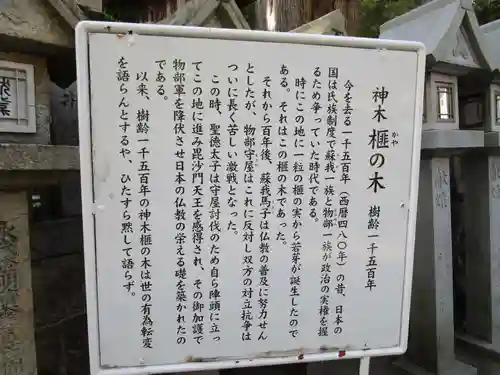 神木 榧の木 樹齢一千五百年
かや
今を去る一千五百年（西暦四八〇年）の昔、日本の
国は氏族制度で蘇我一族と物部一族が政治の実権を握
るため争っていた時代である。
時にこの地に一粒の榧の実から若芽が誕生したので
ある。それはこの榧の木であった。
それから百年後、蘇我馬子は仏教の普及に努力せん
としたが、物部守屋はこれに反対し双方の対立抗争は
ついに長く苦しい激戦となった。
この時、聖徳太子は守屋討伐のため自ら陣頭に立っ
てこの地に進み毘沙門天王を感得され、その御加護で
物部軍を降伏させ日本の仏教の栄える礎を築かれたの
である。
以来、樹齢一千五百年の神木榧の木は世の有為転変
を語らんとするや、ひたすら黙して語らず。
献燈